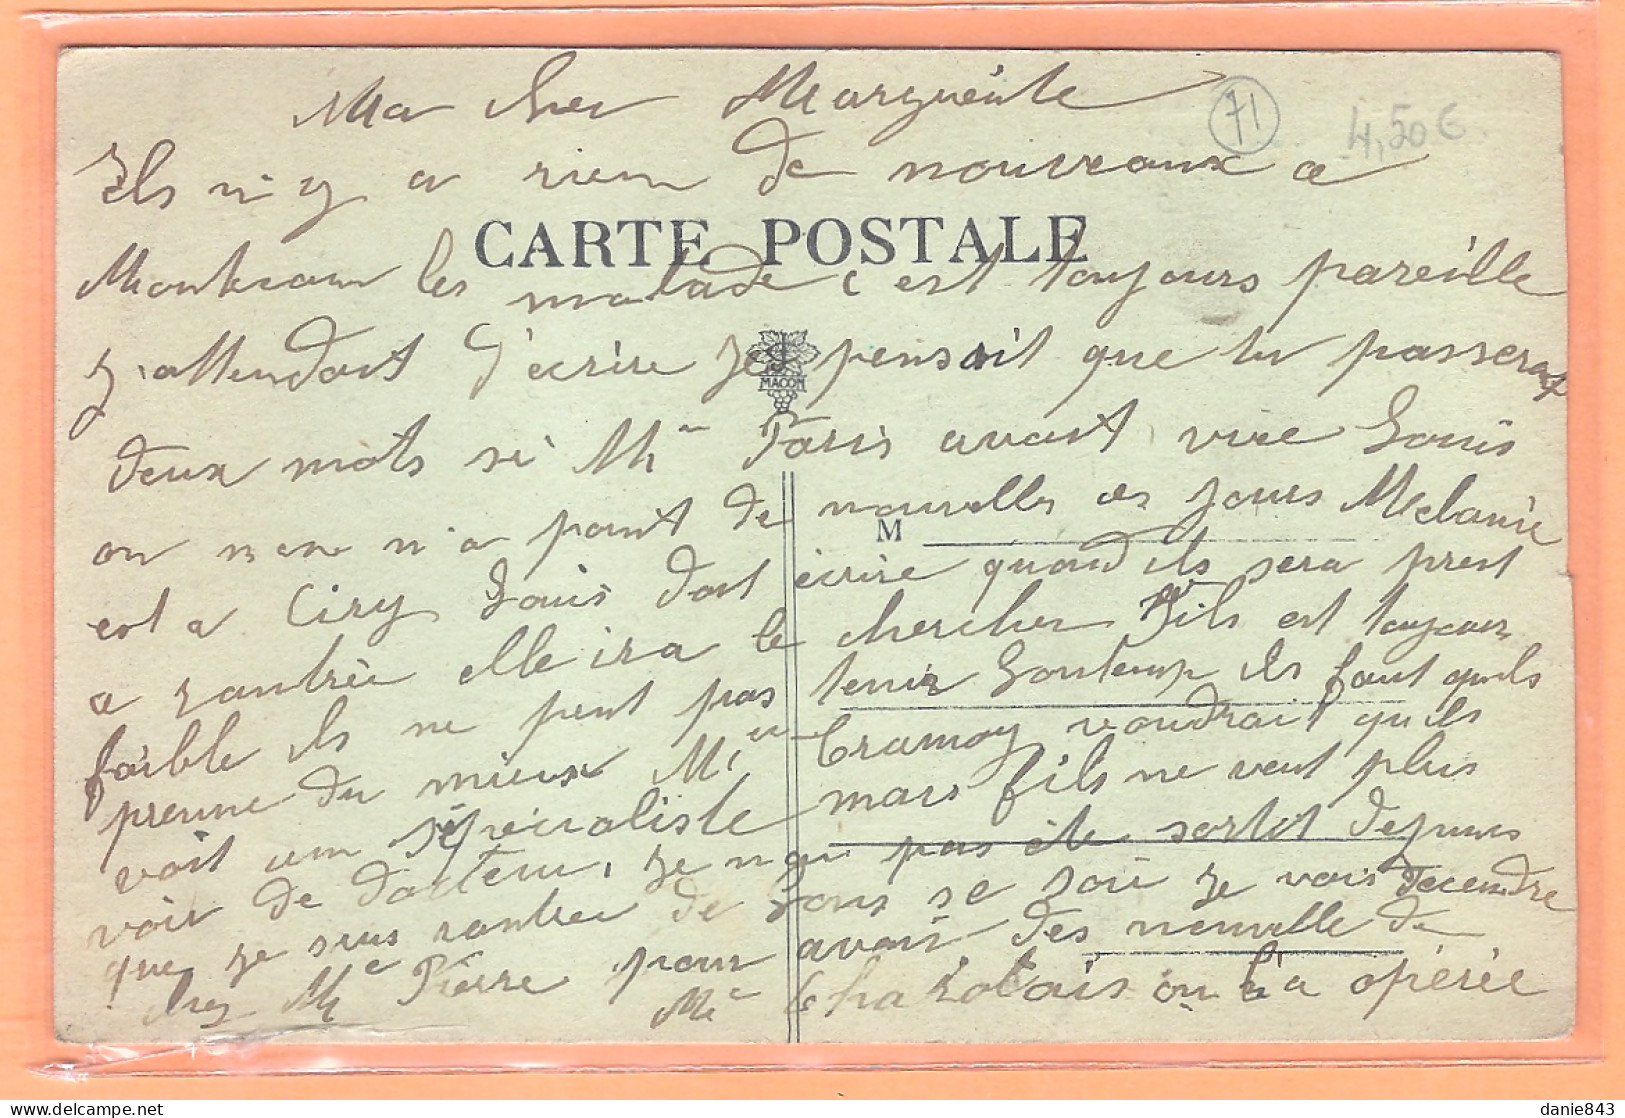 Ma cher Marguerite
71
4,50€
Ils n'y a rien de nouveaux a
CARTE POSTALE
Montceau les malade c'est toujours pareille
j'attendait d'écrire je pensait que tu passera
MACON
deux mots si Mm Paris avait vue Louis
on n'en n'a point de nouvelles ces jours Melanie
M
est a Ciry Louis doit écrire quand ils sera prest
a rantrée elle ira le chercher Fils est toujours
faible ils ne peut pas tenir lontemp ils faut quils
prenne du mieux Mr Cramoy voudrait quils
voit um spécialiste mais fils ne veut plus
voir de docteur, je n'ai pas éte sortit depuis
que je suis rantrer de Lons se soir je vais decendre
chez Me Pierre pour avoir des nouvelle de
Me Charolais on l'a opérée
danie843